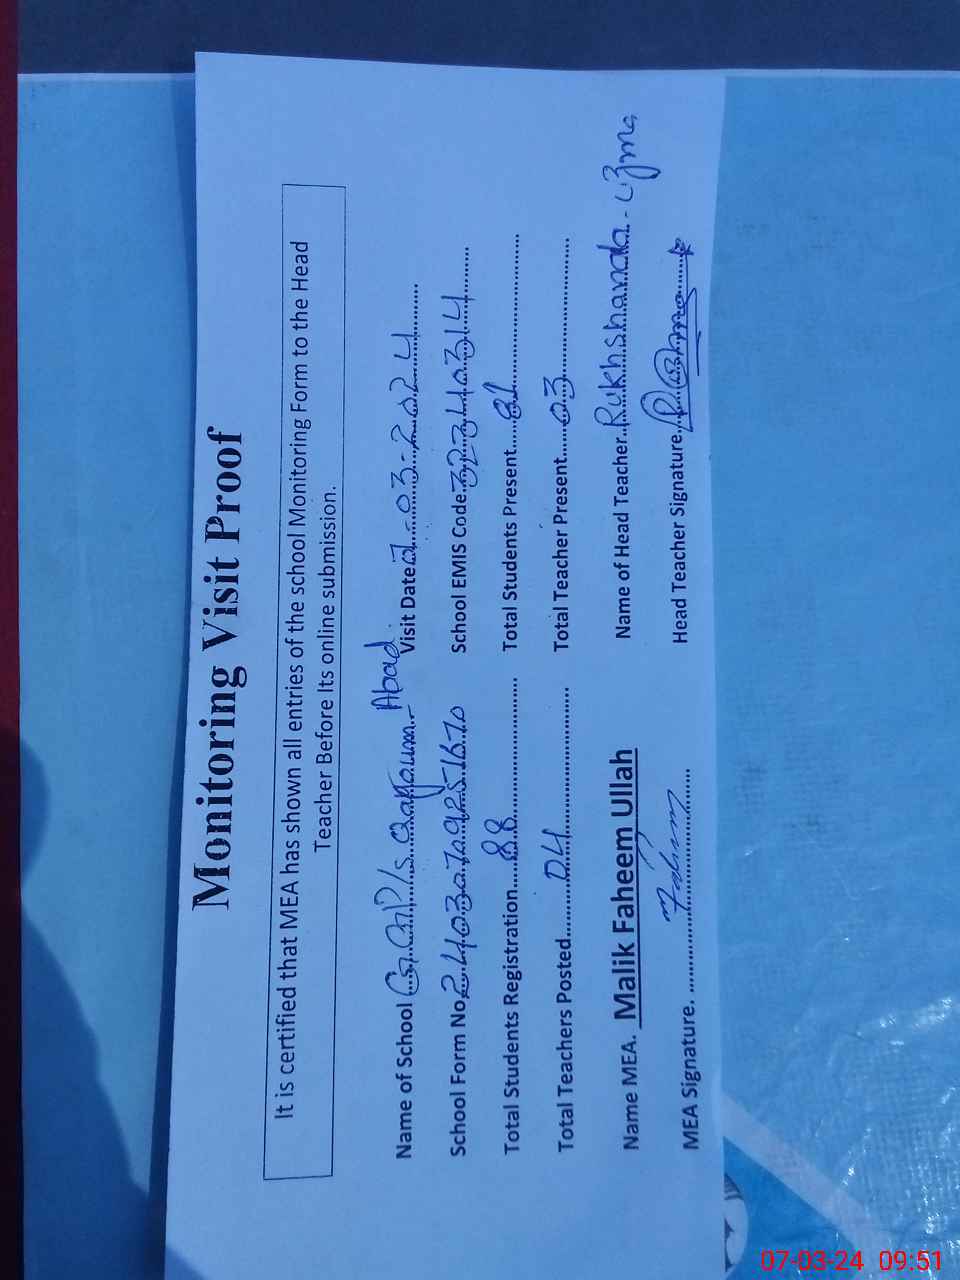 Monitoring Visit Proof
It is certified that MEA has shown all entries of the school Monitoring Form to the Head
Teacher Before Its online submission.
Name of School GGP/s Qayaum Abad Visit Date 7-03-2024
School Form No 2403079251670 School EMIS Code. 32340314
Total Students Registration 88 Total Students Present 81
Total Teachers Posted 04 Total Teacher Present 03
Name MEA. Malik Faheem Ullah Name of Head Teacher. Rukhshanda
MEA Signature. Fahim Head Teacher Signature.
07-03-24 09:51